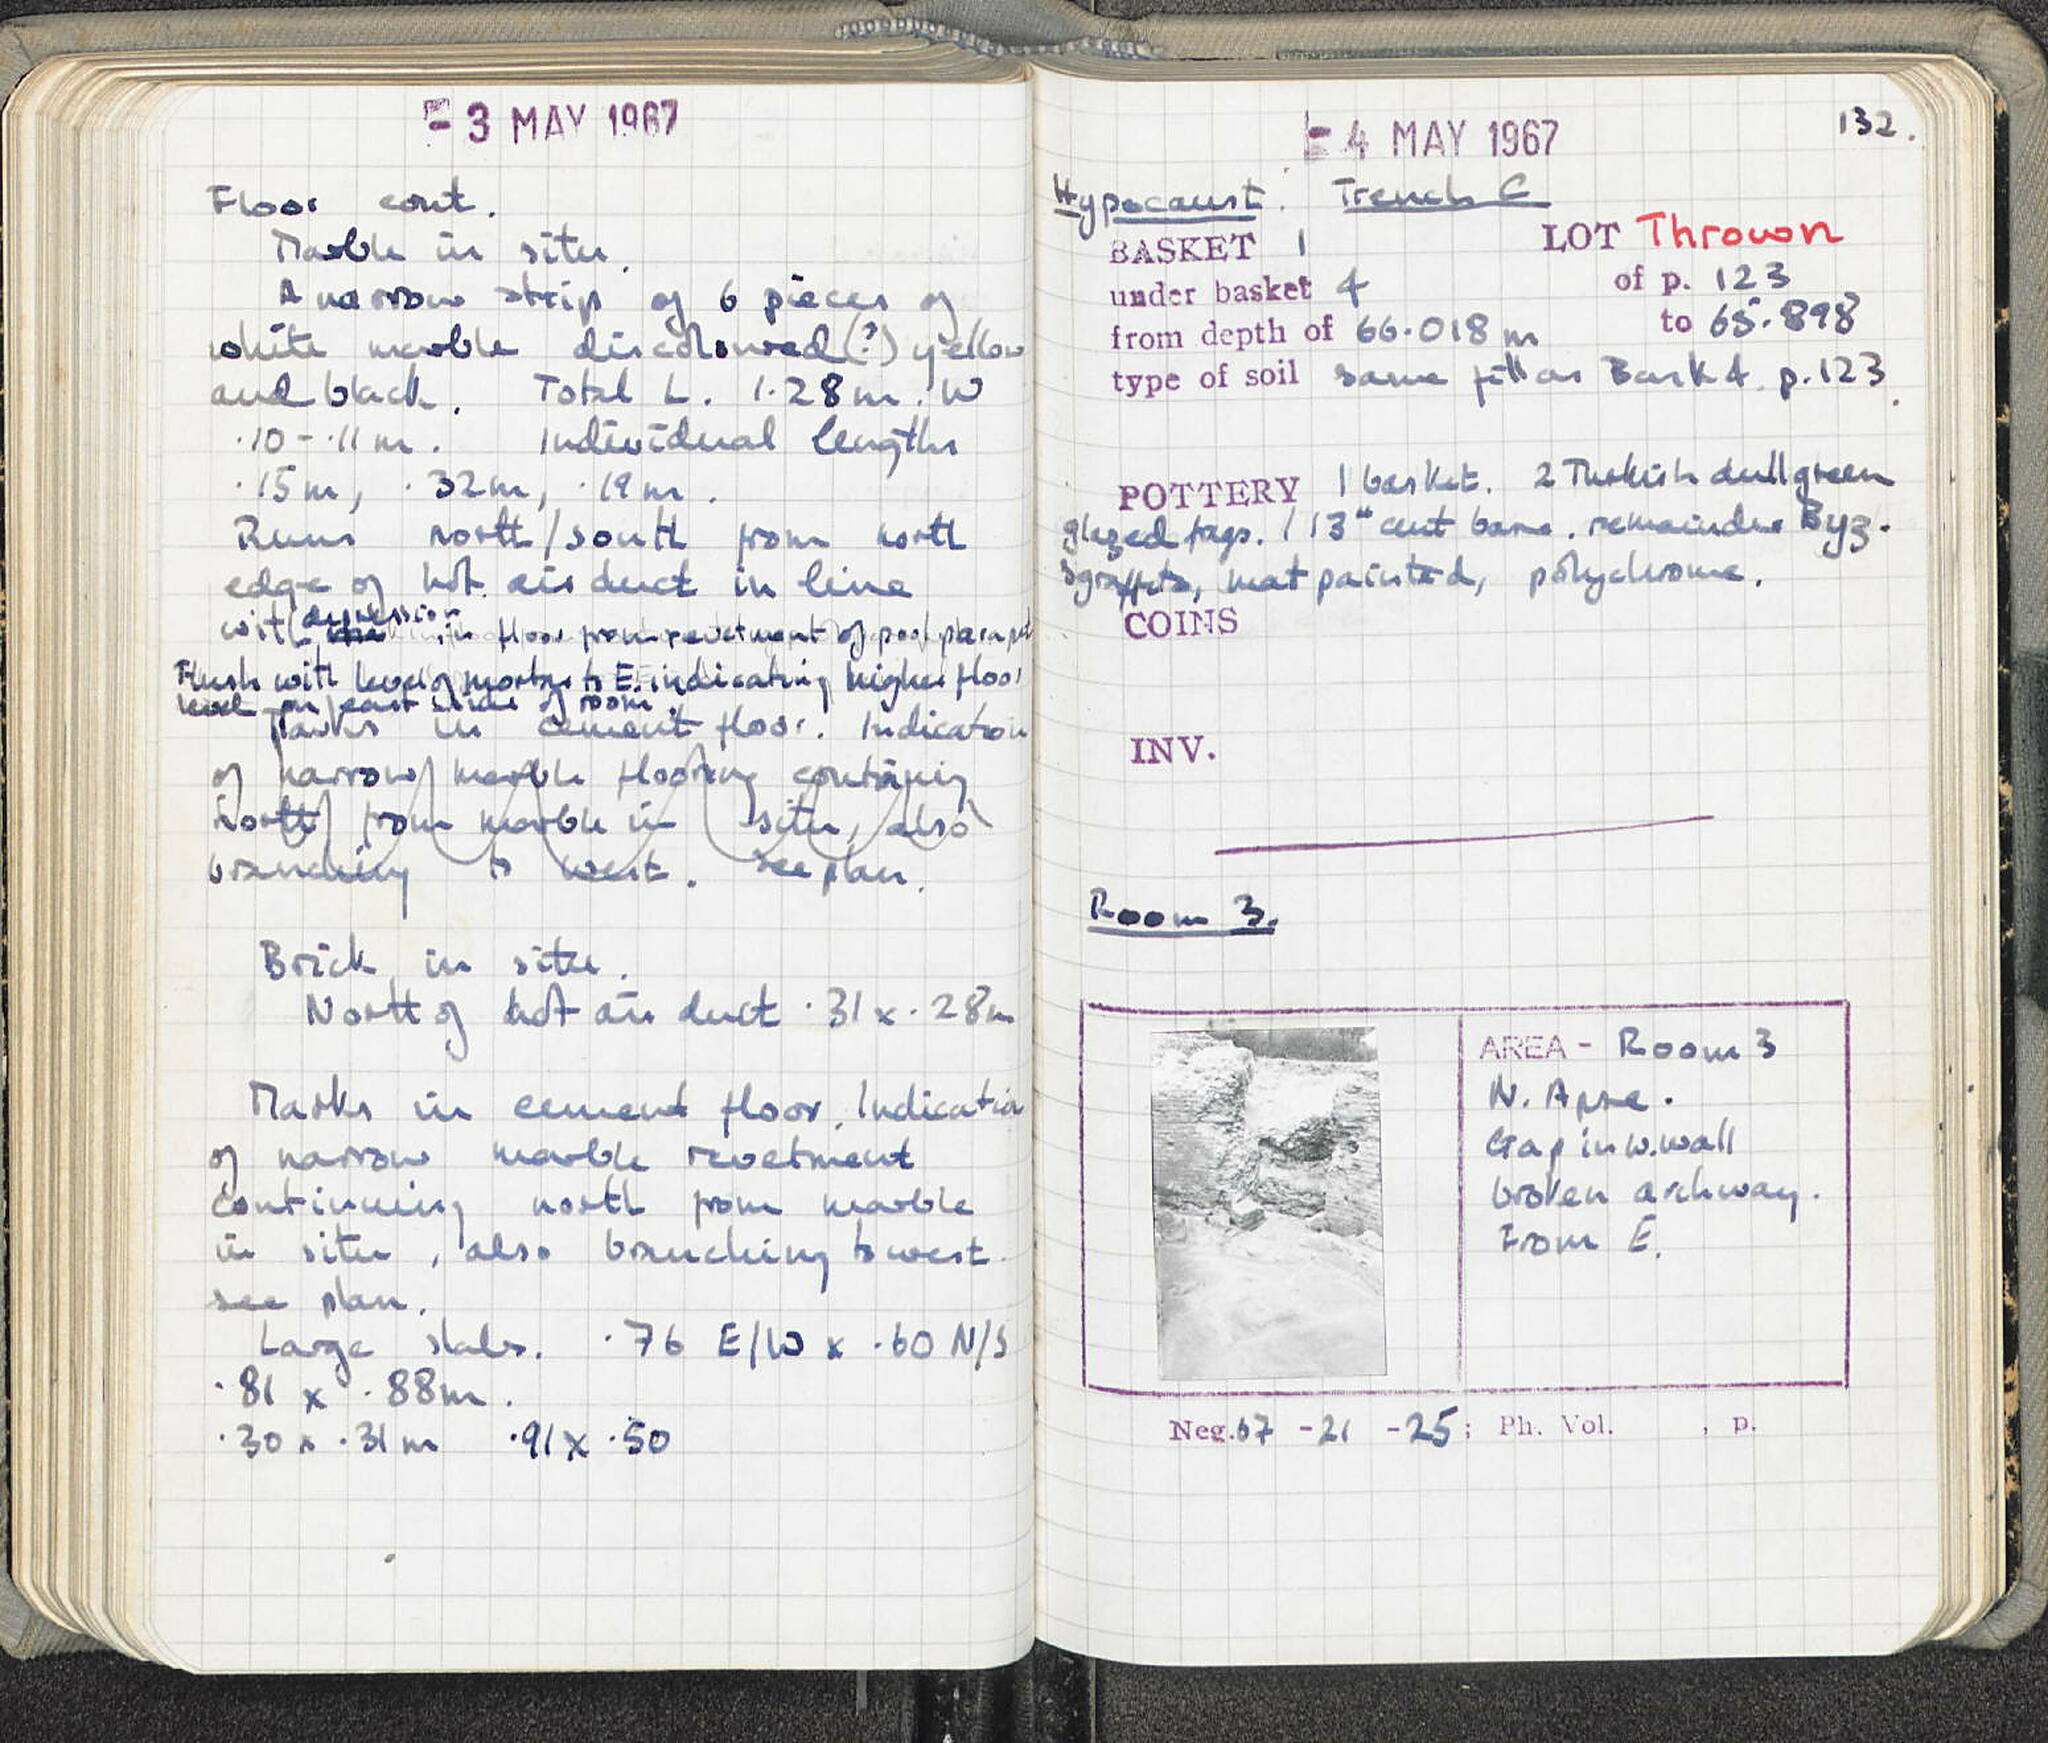 - 3 MAY 1967
Floor cont.
Marble in situ.
A narrow strip of 6 pieces of
white marble discoloured (?) yellow
and black. Total L. 1.28m. W
.10 - .11m. Individual lengths
.15m, .32m, .19m.
Runs north/south from north
edge of hot air duct in line
with depression in floor from revetment of pool parapet
Flush with level of mortar to E. indicating higher floor
level on east side of room.
Marks in cement floor. Indication
of narrow marble flooring containing
north from marble in situ, also
branching to west. See plan.
Brick in situ.
North of hot air duct .31 x .28m
Marks in cement floor. Indication
of narrow marble revetment
continuing north from marble
in situ, also branching to west.
see plan.
Large slabs. .76 E/W x .60 N/S
.81 x .88m.
.30 x .31m .91 x .50
- 4 MAY 1967
132.
Hypocaust. Trench C
BASKET 1 LOT Thrown
under basket 4 of p. 123
from depth of 66.018m to 65.898
type of soil same fill as Bask 4. p. 123.
POTTERY 1 basket. 2 Turkish dull green
glazed frags. 1 13th cent base. remainder Byz.
sgraffito, mat painted, polychrome.
COINS
INV.
Room 3.
AREA - Room 3
N. Apse.
Gap in W. wall
broken archway.
From E.
Neg. 67 - 21 - 25; Ph. Vol. , p.